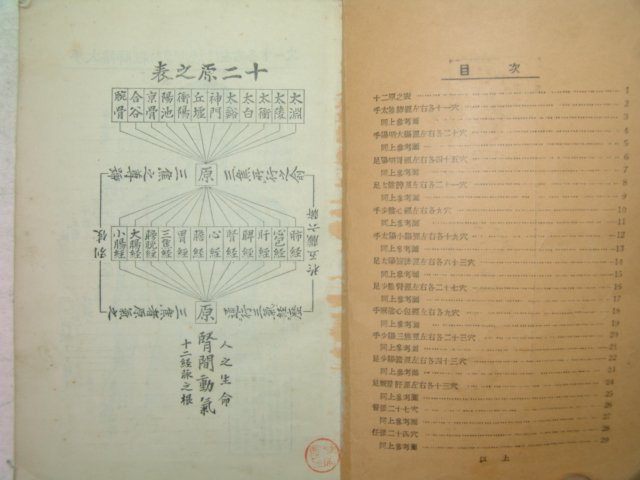 十二原之表
太淵
太陵
太衝
太白
太谿
神門
丘墟
衝陽
陽池
京骨
合谷
腕骨
原
肺経
心包経
肝経
脾経
腎経
心経
胆経
胃経
三焦経
膀胱経
大腸経
小腸経
原
人之生命
腎間動氣
十二経脉之根
目次
十二原之表 1
手太陰肺經左右各十一穴 2
同上參考圖 3
手陽明大腸經左右各二十穴 4
同上參考圖 5
足陽明胃經左右各四十五穴 6
同上參考圖 7
足太陰脾經左右各二十一穴 8
同上參考圖 9
手少陰心經左右各九穴 10
同上參考圖 11
手太陽小腸經左右各十九穴 12
同上參考圖 13
足太陽膀胱經左右各六十三穴 14
同上參考圖 15
足少陰腎經左右各二十七穴 16
同上參考圖 17
手厥陰心包經左右各九穴 18
同上參考圖 19
手少陽三焦經左右各二十三穴 20
同上參考圖 21
足少陽膽經左右各四十三穴 22
同上參考圖 23
足厥陰肝經左右各十三穴 24
同上參考圖 25
督脈二十七穴 26
同上參考圖 27
任脈二十四穴 28
同上參考圖 29
以上